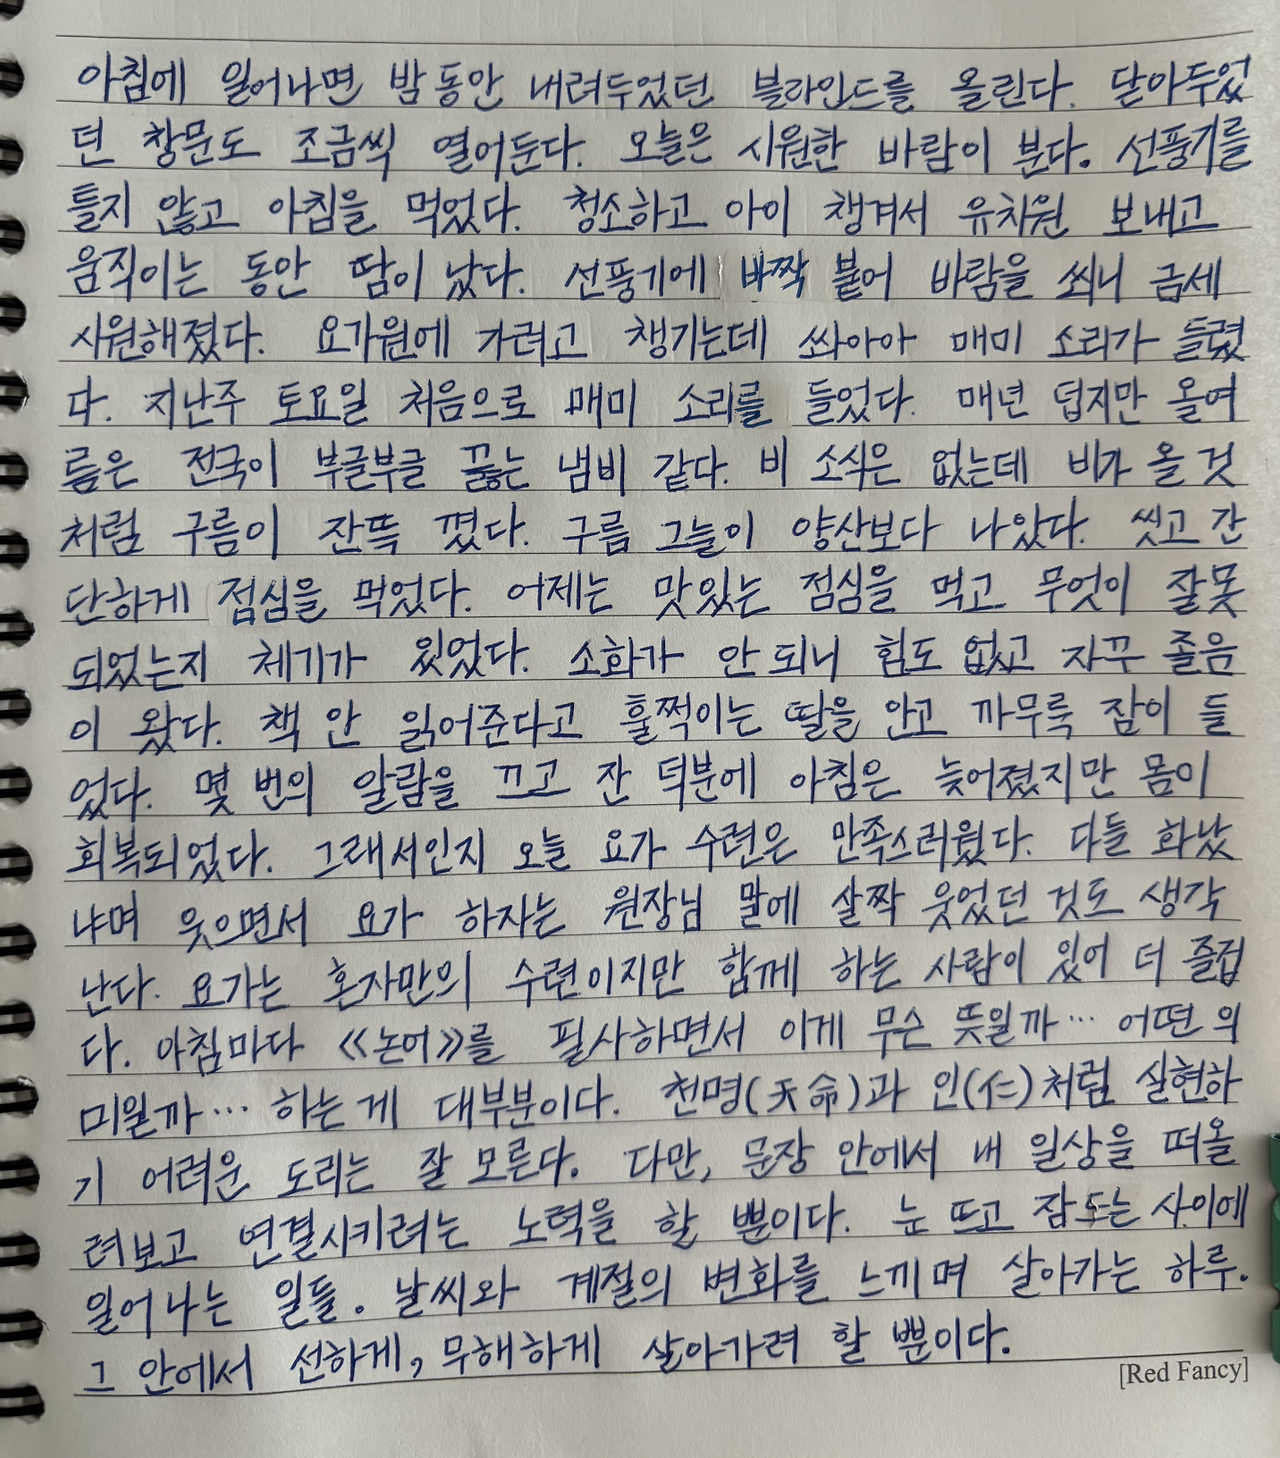 아침에 일어나면 밤 동안 내려두었던 블라인드를 올린다. 닫아두었
던 창문도 조금씩 열어둔다. 오늘은 시원한 바람이 분다. 선풍기를
틀지 않고 아침을 먹었다. 청소하고 아이 챙겨서 유치원 보내고
움직이는 동안 땀이 났다. 선풍기에 바짝 붙어 바람을 쐬니 금세
시원해졌다. 요가원에 가려고 챙기는데 쏴아아 매미 소리가 들렸
다. 지난주 토요일 처음으로 매미 소리를 들었다. 매년 덥지만 올여
름은 전국이 부글부글 끓는 냄비 같다. 비 소식은 없는데 비가 올 것
처럼 구름이 잔뜩 꼈다. 구름 그늘이 양산보다 나았다. 씻고 간
단하게 점심을 먹었다. 어제는 맛있는 점심을 먹고 무엇이 잘못
되었는지 체기가 있었다. 소화가 안 되니 힘도 없고 자꾸 졸음
이 왔다. 책 안 읽어준다고 훌쩍이는 딸을 안고 까무룩 잠이 들
었다. 몇 번의 알람을 끄고 잔 덕분에 아침은 늦어졌지만 몸이
회복되었다. 그래서인지 오늘 요가 수련은 만족스러웠다. 다들 화났
냐며 웃으면서 요가 하자는 원장님 말에 살짝 웃었던 것도 생각
난다. 요가는 혼자만의 수련이지만 함께 하는 사람이 있어 더 즐겁
다. 아침마다 《논어》를 필사하면서 이게 무슨 뜻일까… 어떤 의
미일까… 하는 게 대부분이다. 천명(天命)과 인(仁)처럼 실현하
기 어려운 도리는 잘 모른다. 다만, 문장 안에서 내 일상을 떠올
려보고 연결시키려는 노력을 할 뿐이다. 눈 뜨고 잠드는 사이에
일어나는 일들. 날씨와 계절의 변화를 느끼며 살아가는 하루.
그 안에서 선하게, 무해하게 살아가려 할 뿐이다.
[Red Fancy]